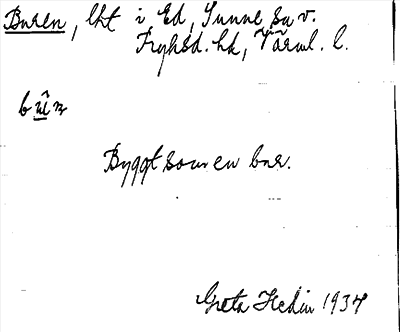 Buren, lht i Ed, Sunne sn v.
Fryksd. hd, Värml. l.
bû̲n
Byggt som en bur.
Greta Hedin 1937